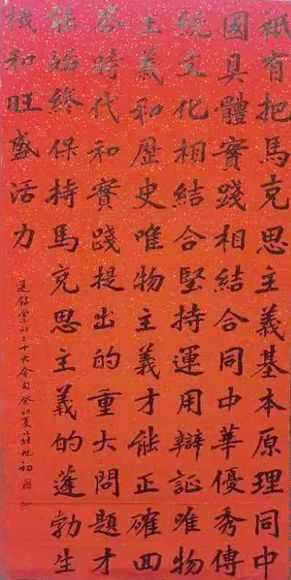 祇有把馬克思主義基本原理同中
國具體實踐相結合同中華優秀傳
統文化相結合堅持運用辯証唯物
主義和歷史唯物主義才能正確回
答時代和實踐提出的重大問題才
能始終保持馬克思主義的蓬勃生
機和旺盛活力
選錄黨的二十大金句癸卯夏旭初書